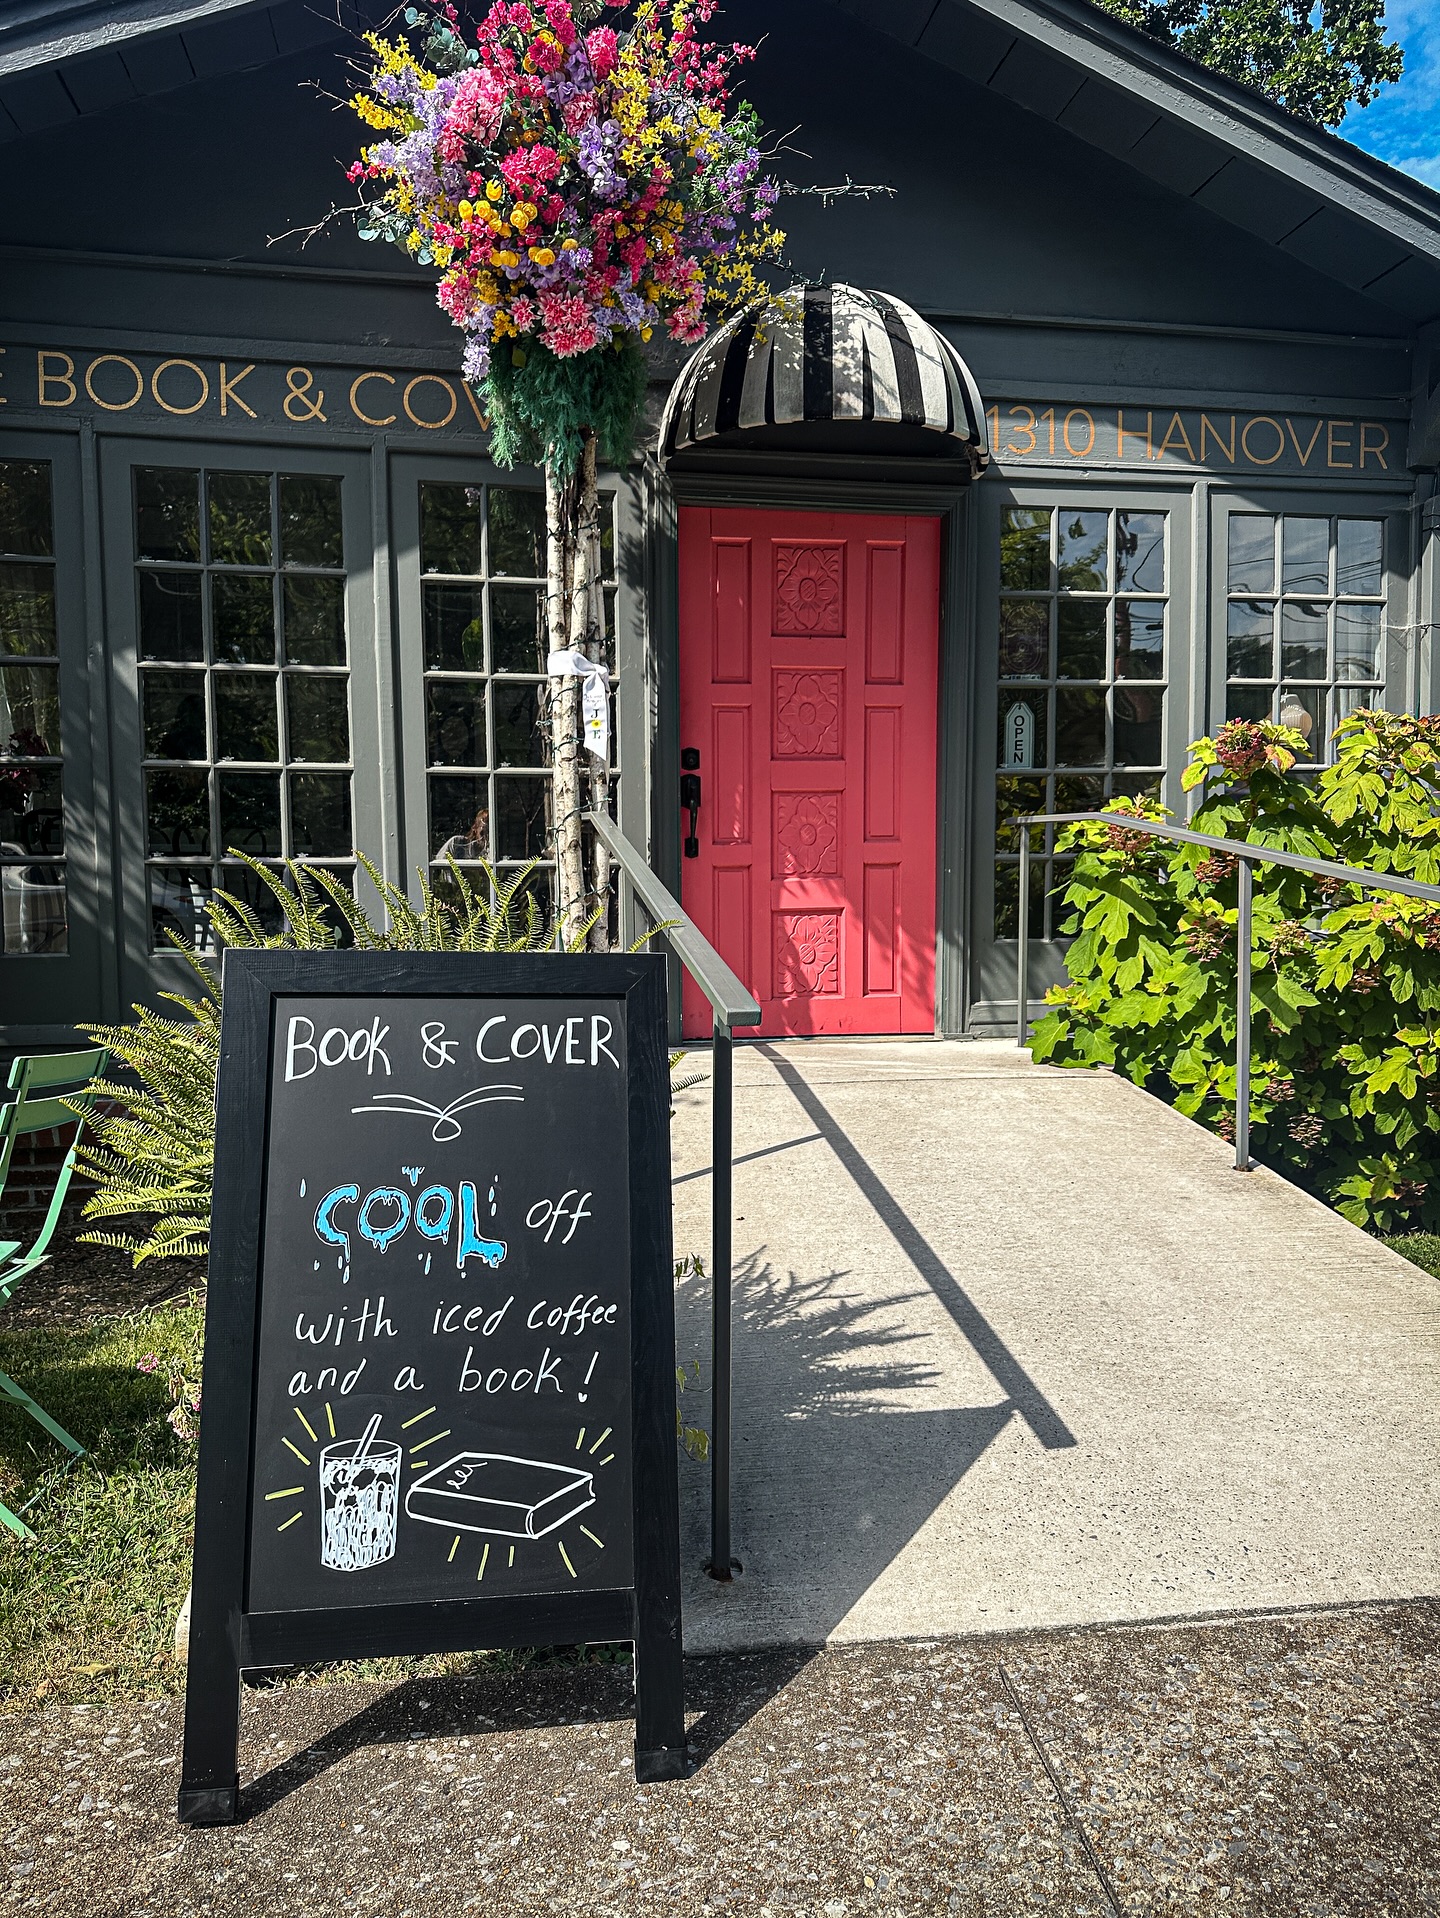 BOOK & COV
1310 HANOVER
OPEN
BOOK & COVER
COOL off
with iced coffee
and a book!